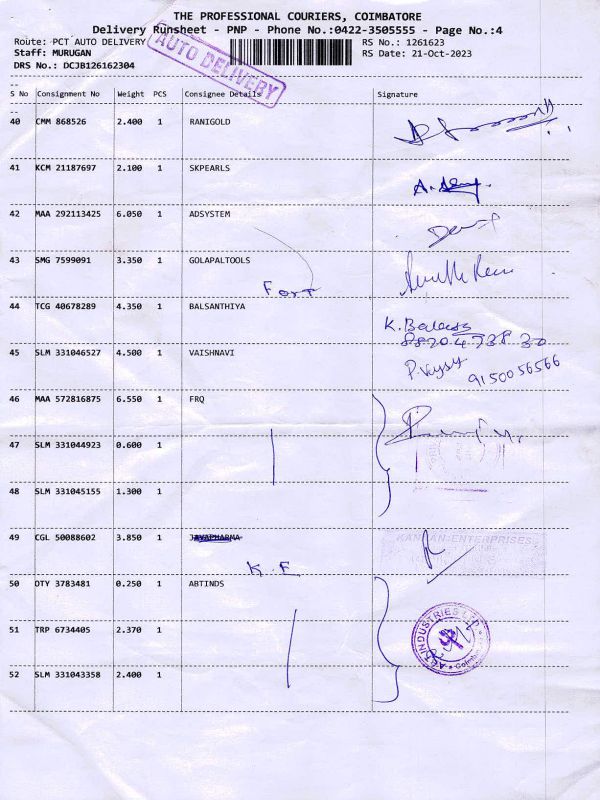 THE PROFESSIONAL COURIERS, COIMBATORE
Delivery Runsheet - PNP - Phone No.:0422-3505555 - Page No.:4
Route: PCT AUTO DELIVERY RS No.: 1261623
Staff: MURUGAN RS Date: 21-Oct-2023
DRS No.: DCJB126162304
AUTO DELIVERY
S No Consignment No Weight PCS Consignee Details Signature
40 CMM 868526 2.400 1 RANIGOLD
41 KCM 21187697 2.100 1 SKPEARLS
42 MAA 292113425 6.050 1 ADSYSTEM
43 SMG 7599091 3.350 1 GOLAPALTOOLS
Fort
44 TCG 40678289 4.350 1 BALSANTHIYA
K.
45 SLM 331046527 4.500 1 VAISHNAVI
9150056566
46 MAA 572816875 6.550 1 FRQ
47 SLM 331044923 0.600 1
48 SLM 331045155 1.300 1
49 CGL 50088602 3.850 1 JAYAPHARMA
KANNAN ENTERPRISES
K.E
50 OTY 3783481 0.250 1 ABTINDS
51 TRP 6734405 2.370 1
INDUSTRIES LTD
52 SLM 331043358 2.400 1